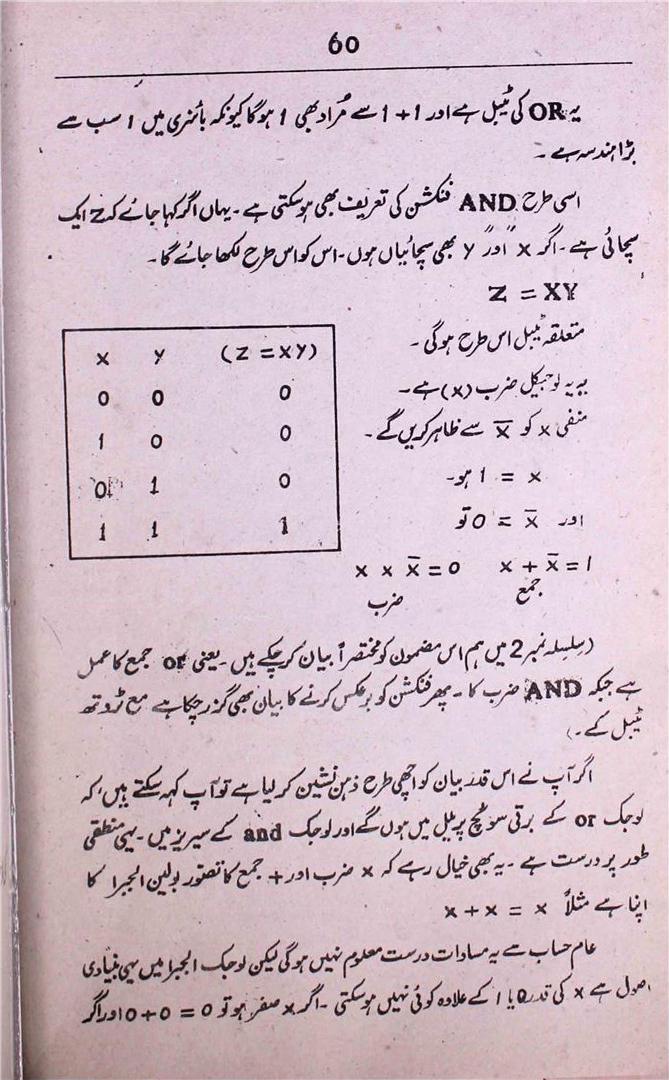 60
یہ OR کی ٹیبل ہے اور 1+1 سے مُراد بھی 1 ہوگا کیونکہ بائنری میں 1 سب سے
بڑا ہندسہ ہے ۔
اسی طرح AND فنکشن کی تعریف بھی ہوسکتی ہے ۔ یہاں اگر کہا جائے کہ Z ایک
سچائی ہے ۔ اگر "X" اور "Y" بھی سچائیاں ہوں ۔ اس کو اس طرح لکھا جائے گا ۔
Z = XY
متعلقہ ٹیبل اس طرح ہوگی ۔
X Y (Z = XY)
0 0 0
1 0 0
0 1 0
1 1 1
یہ لوجیکل ضرب (x) ہے ۔
منفی x کو x̄ سے ظاہر کریں گے ۔
x = 1 ہو ۔
اور x̄ = 0 تو
x + x̄ = 1 x × x̄ = 0
جمع ضرب
(سلسلہ نمبر 2 میں ہم اس مضمون کو مختصراً بیان کرچکے ہیں ۔ یعنی or جمع کا عمل
ہے جبکہ AND ضرب کا ۔ پھر فنکشن کو برعکس کرنے کا بیان بھی گزر چکا ہے مع ٹروتھ
ٹیبل کے ۔)
اگر آپ نے اس قدر بیان کو اچھی طرح ذہن نشین کرلیا ہے تو آپ کہہ سکتے ہیں کہ
لوجک or کے برقی سوئچ پریلل میں ہوں گے اور لوجک and کے سیریز میں ۔ یہی منطقی
طور پر درست ہے ۔ یہ بھی خیال رہے کہ x ضرب اور + جمع کا تصور بولین الجبرا کا
اپنا ہے مثلاً x + x = x
عام حساب سے یہ مساوات درست معلوم نہیں ہوگی لیکن لوجک الجبرا میں یہی بنیادی
اصول ہے x کی قدر 0 یا 1 کے علاوہ کوئی نہیں ہوسکتی ۔ اگر x صفر ہو تو 0 = 0+0 اور اگر